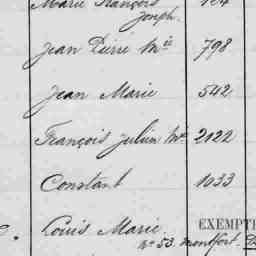 Marie François 184
Joseph.
Jean Pierre Mie 798
Jean Marie 542
François Julien Mie 2122
Constant 1033
Louis Marie EXEMPTÉ
No 53. Montfort.